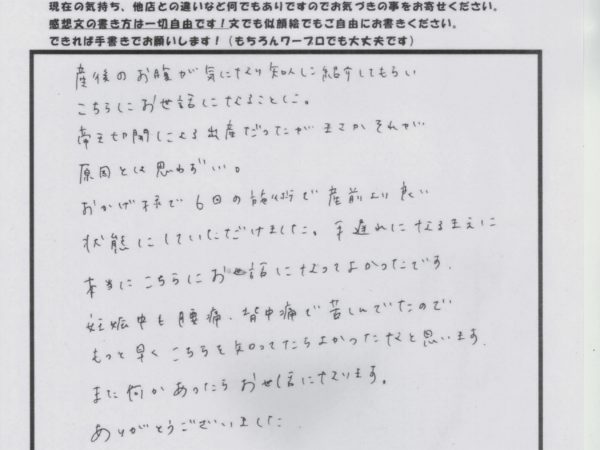 現在の気持ち、他店との違いなど何でもありですのでお気づきの事をお寄せください。
感想文の書き方は一切自由です！文でも似顔絵でもご自由にお書きください。
できれば手書きでお願いします！（もちろんワープロでも大丈夫です）
産後のお腹が気になり知人に紹介してもらい
こちらにお世話になることに。
帝王切開による出産だったがまさかそれが
原因とは思わずい。
おかげ様で6回の施術で産前より良い
状態にしていただけました。手遅れになるまえに
本当にこちらにお世話になってよかったです。
妊娠中も腰痛、背中痛で苦しんでたので
もっと早くこちらを知ってたらよかったなと思います。
また何かあったらお世話になります。
ありがとうございました